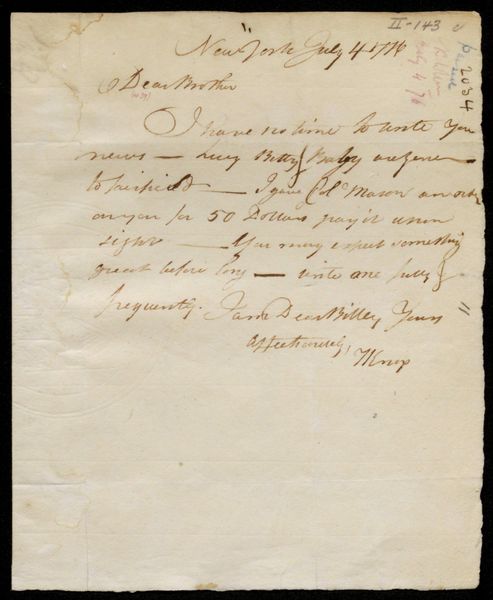 II-143
2034
New York July 4 1776
Dear Brother
I have no time to write you
news — Lucy Betty & Baby are gone
to Fairfield — I gave Col Mason an order
on you for 50 Dollars pay'd upon
sight — You may expect something
great before long — write me fully &
frequently. I am Dear Billey Yours
affectionately,
HKnox
11